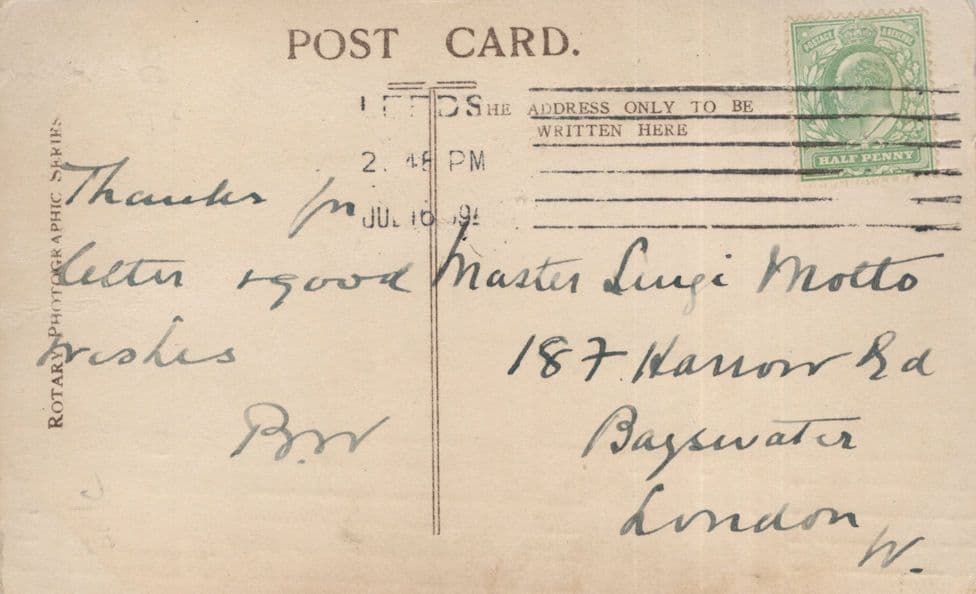 POST CARD.
POSTAGE & REVENUE
HALF PENNY
THE ADDRESS ONLY TO BE
WRITTEN HERE
LEEDS
2. 45 PM
JUL 16
ROTARY PHOTOGRAPHIC SERIES
Thanks for
letter & good
wishes
B.W
Master Luigi Motto
187 Harrow Rd
Bayswater
London
W.